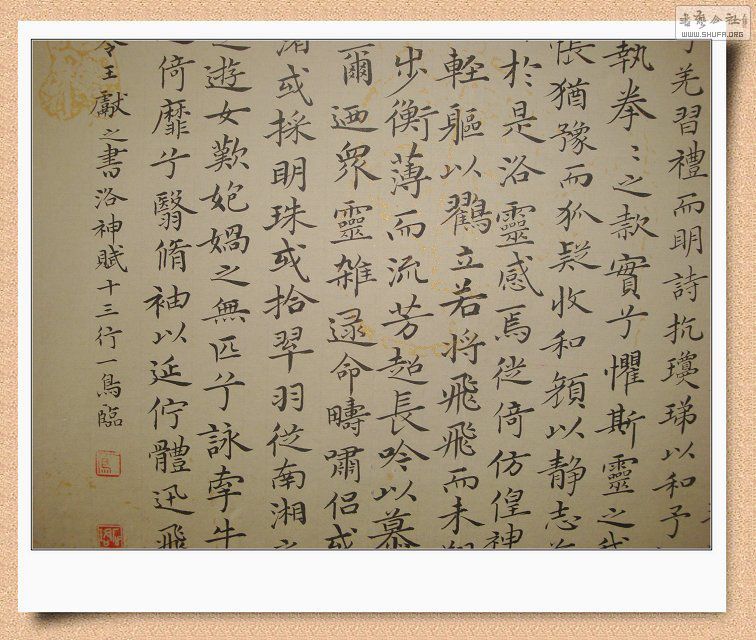 羌習禮而明詩抗瓊珶以和予
執拳〻之款實兮懼斯靈之我
悵猶豫而狐疑收和顏以静志
於是洛靈感焉徙倚仿偟神
輕軀以鶴立若將飛飛而未翔
步衡薄而流芳超長吟以慕
爾迺眾靈雜遝命疇嘯侶或
渚或採明珠或拾翠羽從南湘之
遊女歎匏媧之無匹兮詠牽牛
之倚靡兮翳脩袖以延佇體迅飛
令王獻之書洛神賦十三行一鳥臨
書藝公社
WWW.SHUFA.ORG